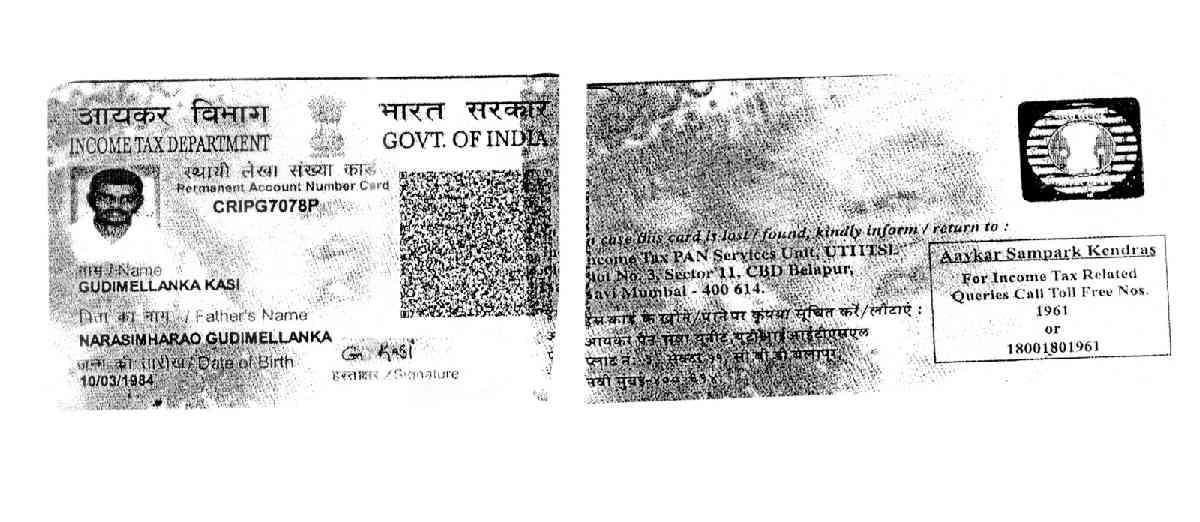 आयकर विभाग
INCOME TAX DEPARTMENT
भारत सरकार
GOVT. OF INDIA
स्थायी लेखा संख्या कार्ड
Permanent Account Number Card
CRIPG7078P
नाम / Name
GUDIMELLANKA KASI
पिता का नाम / Father's Name
NARASIMHARAO GUDIMELLANKA
जन्म की तारीख / Date of Birth
10/03/1984
G. Kasi
हस्ताक्षर / Signature
case this card is lost / found, kindly inform / return to :
Income Tax PAN Services Unit, UTIITSL
Plot No. 3, Sector 11, CBD Belapur,
Navi Mumbai - 400 614.
इस कार्ड के खोने/पाने पर कृपया सूचित करें/लौटाएं :
आयकर पैन सेवा यूनीट, यूटीआईआईटीएसएल
प्लाट नं. सेक्टर ११, सी.बी.डी. बेलापुर,
नवी मुंबई-
Aaykar Sampark Kendras
For Income Tax Related
Queries Call Toll Free Nos.
1961
or
18001801961